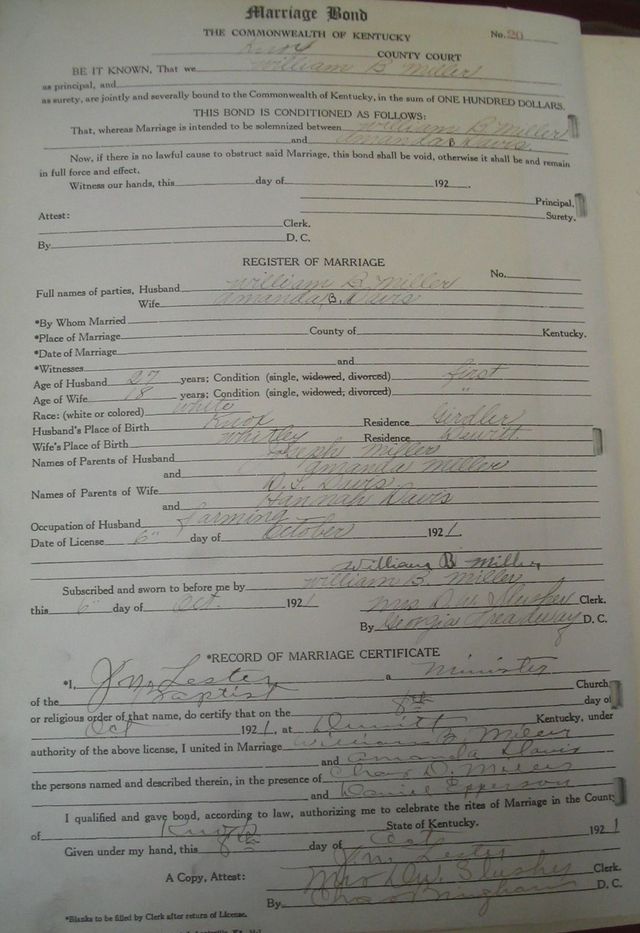 Marriage Bond
THE COMMONWEALTH OF KENTUCKY No. 20
Knox COUNTY COURT
BE IT KNOWN, That we William B Miller
as principal, and
as surety, are jointly and severally bound to the Commonwealth of Kentucky, in the sum of ONE HUNDRED DOLLARS.
THIS BOND IS CONDITIONED AS FOLLOWS:
That, whereas Marriage is intended to be solemnized between William B Miller
and Amanda B Davis.
Now, if there is no lawful cause to obstruct said Marriage, this bond shall be void, otherwise it shall be and remain
in full force and effect.
Witness our hands, this day of 192 .
Principal.
Attest: Surety.
Clerk.
By D. C.
REGISTER OF MARRIAGE
No.
Full names of parties, Husband William B. Miller
Wife Amanda B. Davis
*By Whom Married
*Place of Marriage County of Kentucky.
*Date of Marriage
*Witnesses and
Age of Husband 27 years; Condition (single, widowed, divorced) first
Age of Wife 18 years; Condition (single, widowed, divorced) "
Race: (white or colored) White
Husband's Place of Birth Knox Residence Girdler
Wife's Place of Birth Whitley Residence Dewitt
Names of Parents of Husband Joseph Miller
and Amanda Miller
Names of Parents of Wife D. S. Davis
and Hannah Davis
Occupation of Husband farming
Date of License 6" day of October 1921.
William B Miller
Subscribed and sworn to before me by William B. Miller
this 6" day of Oct 1921 Mrs D. W. Slusher Clerk.
By Georgia Treadway D. C.
*RECORD OF MARRIAGE CERTIFICATE
*I, J. M. Lester a Minister
of the Baptist Church,
or religious order of that name, do certify that on the 8th day of
Oct 1921, at Dewitt Kentucky, under
authority of the above license, I united in Marriage William B. Miller
and Amanda Davis
the persons named and described therein, in the presence of Chas D. Miller
and Daniel Epperson
I qualified and gave bond, according to law, authorizing me to celebrate the rites of Marriage in the County
of Knox State of Kentucky.
Given under my hand, this 8th day of Oct 1921
J. M. Lester
A Copy, Attest: Mrs D. W. Slusher Clerk.
By Chas Bingham D. C.
*Blanks to be filled by Clerk after return of License.